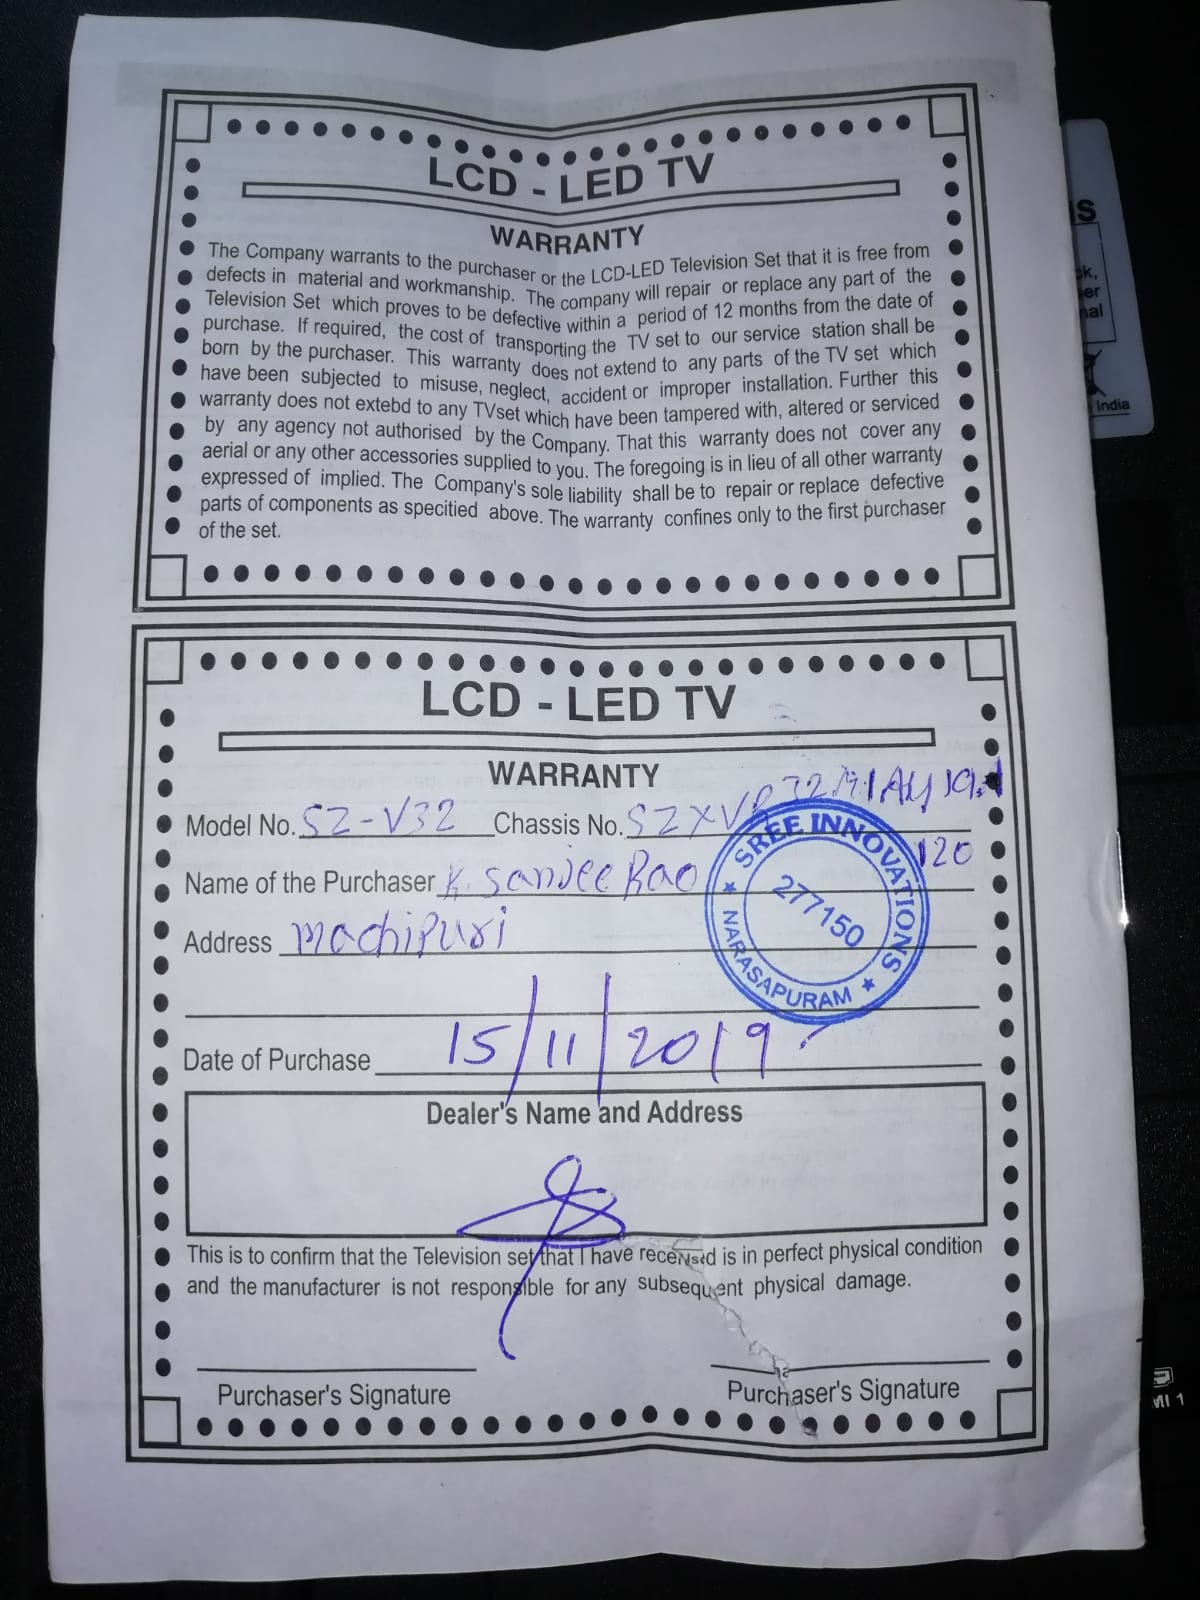 LCD - LED TV
WARRANTY
The Company warrants to the purchaser or the LCD-LED Television Set that it is free from
defects in material and workmanship. The company will repair or replace any part of the
Television Set which proves to be defective within a period of 12 months from the date of
purchase. If required, the cost of transporting the TV set to our service station shall be
born by the purchaser. This warranty does not extend to any parts of the TV set which
have been subjected to misuse, neglect, accident or improper installation. Further this
warranty does not extebd to any TVset which have been tampered with, altered or serviced
by any agency not authorised by the Company. That this warranty does not cover any
aerial or any other accessories supplied to you. The foregoing is in lieu of all other warranty
expressed of implied. The Company's sole liability shall be to repair or replace defective
parts of components as specitied above. The warranty confines only to the first purchaser
of the set.
LCD - LED TV
WARRANTY
Model No. SZ-V32 Chassis No.
120
Name of the Purchaser K. Sanjee Rao
Address Machipuri
SREE INNOVATIONS
277150
NARASAPURAM
Date of Purchase 15/11/2019
Dealer's Name and Address
This is to confirm that the Television set that I have received is in perfect physical condition
and the manufacturer is not responsible for any subsequent physical damage.
Purchaser's Signature Purchaser's Signature
India